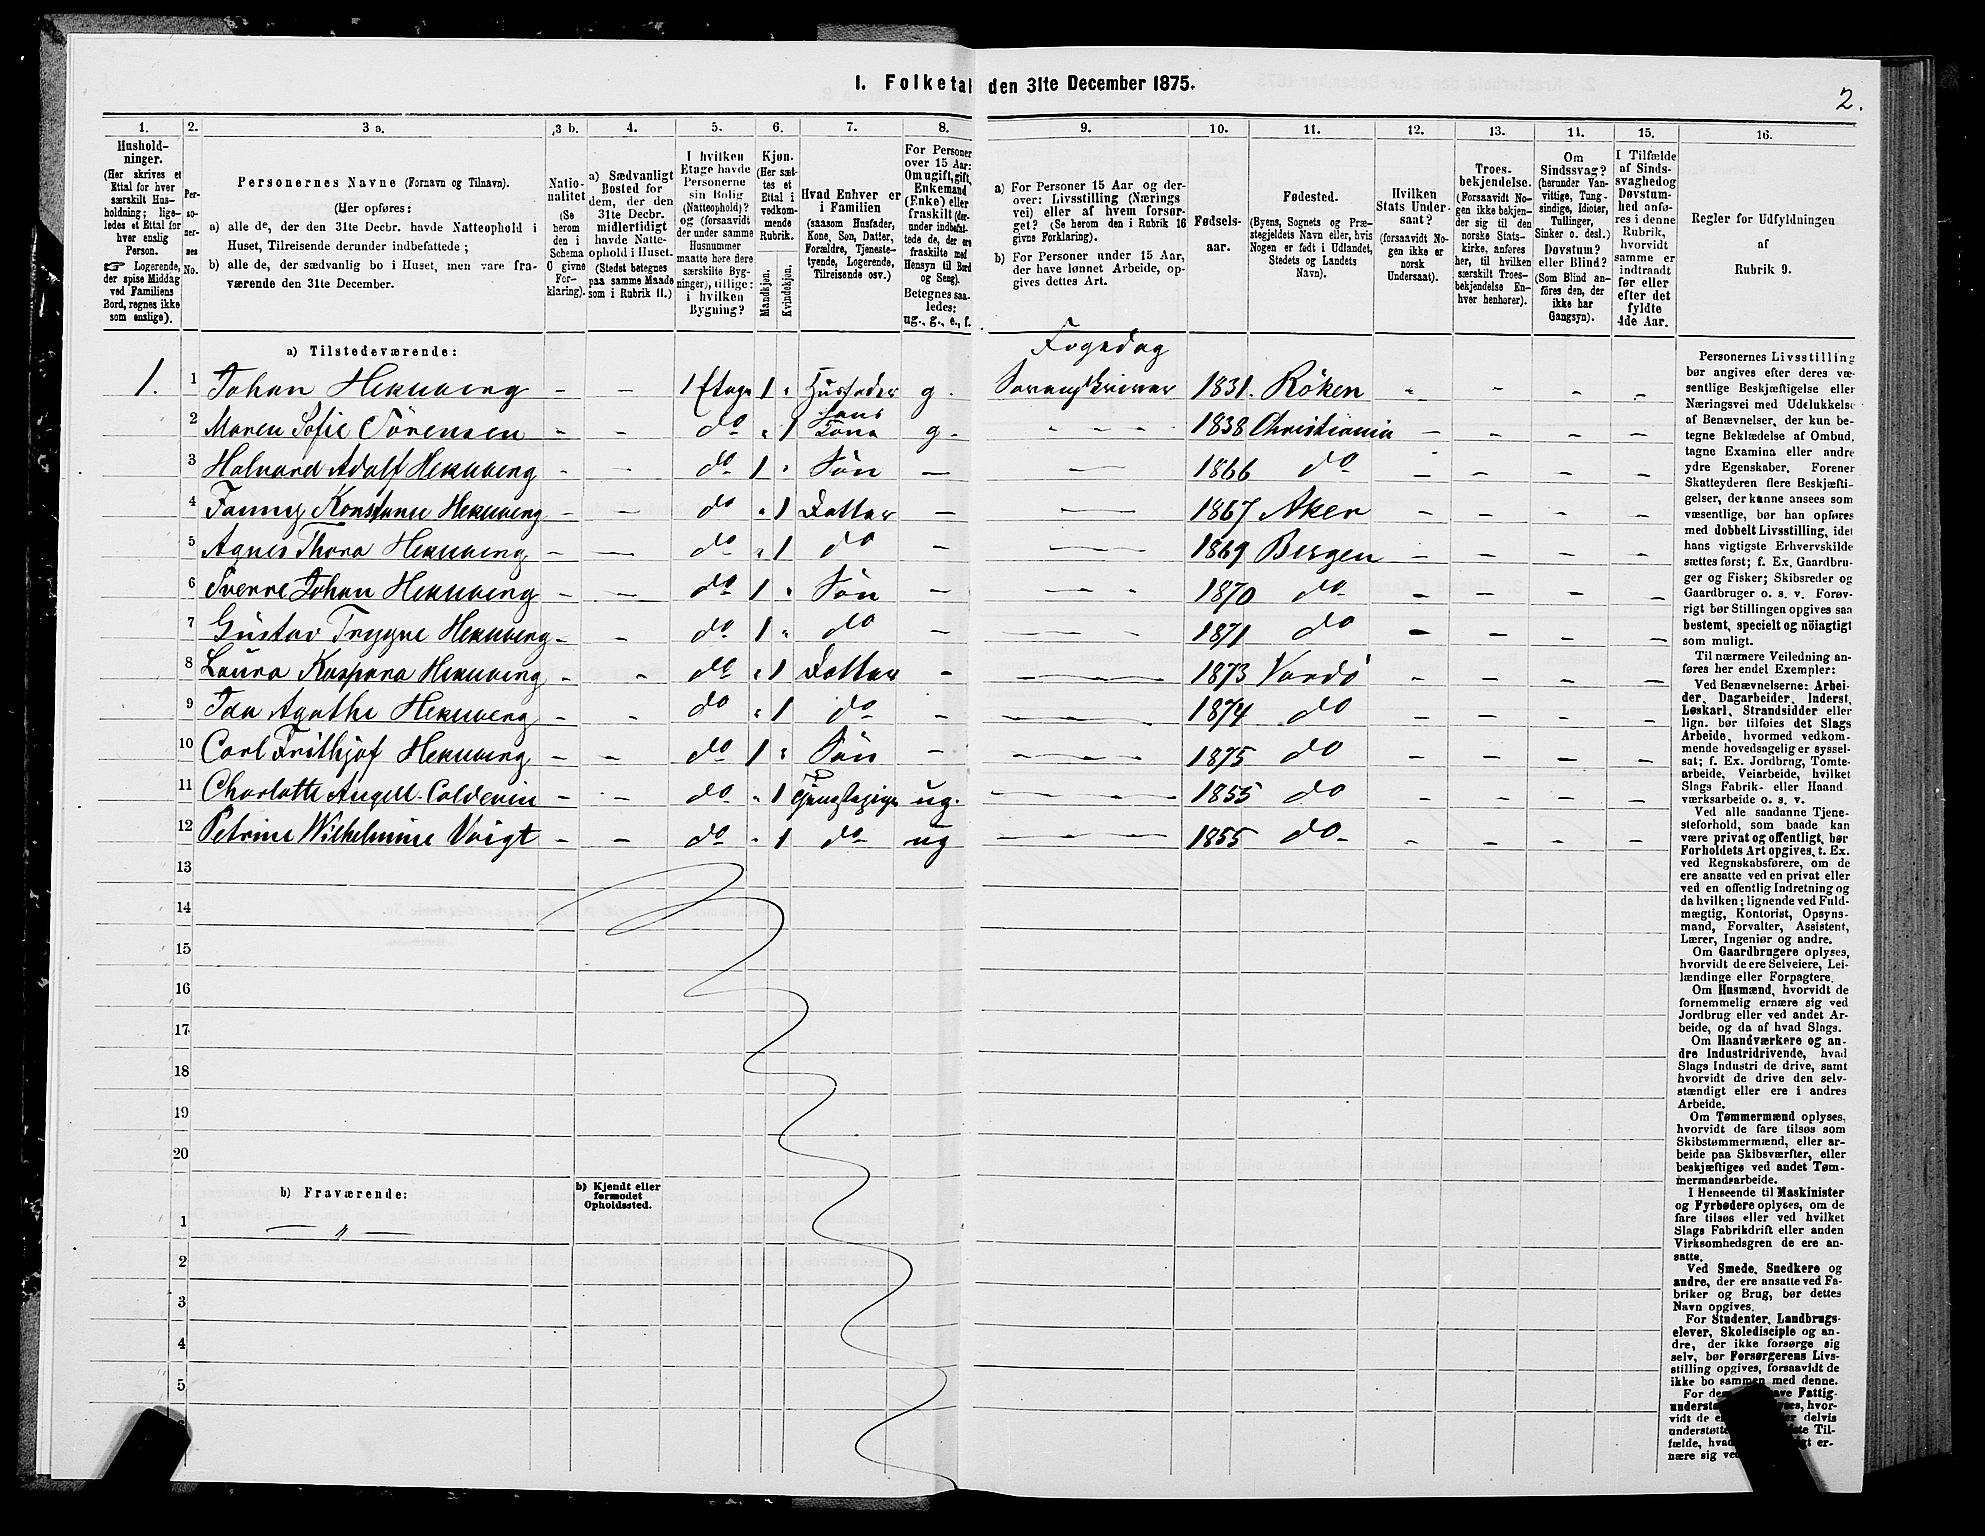 1. Folketal den 31te December 1875.
2.
1. 2. 3 a. 3 b. 4. 5. 6. 7. 8. 9. 10. 11. 12. 13. 14. 15. 16.
Hushold-
ninger.
(Her skrives et
Ettal for hver
særskilt Hus-
holdning; lige-
ledes et Ettal for
hver enslig
Person.
☞ Logerende,
der spise Middag
ved Familiens
Bord, regnes ikke
som enslige).
Per-
so-
ner-
nes
No.
Personernes Navne (Fornavn og Tilnavn).
(Her opføres:
a) alle de, der den 31te Decbr. havde Natteophold i
Huset, Tilreisende derunder indbefattede;
b) alle de, der sædvanlig bo i Huset, men vare fra-
værende den 31te December.
Natio-
nalitet
(Se
herom
den i
Schema
6 givne
For-
klaring).
a) Sædvanligt
Bosted for
dem, der den
31te Decbr.
midlertidigt
havde Natte-
ophold i Huset.
(Stedet betegnes
paa samme Maade
som i Rubrik 11.)
I hvilken
Etage havde
Personerne
sin Bolig
(Natteophold)?
og (forsaavidt
der under samme
Husnummer
maatte høre flere
særskilte Byg-
ninger), tillige:
i hvilken
Bygning?
Kjøn.
(Her sæt-
tes et
Ettal i
vedkom-
mende
Rubrik.
Mandkjøn.
Kvindekjøn.
Hvad Enhver er
i Familien
(saasom Husfader,
Kone, Søn, Datter,
Forældre, Tjeneste-
tyende, Logerende,
Tilreisende osv.)
For Personer
over 15 Aar:
Om ugift, gift,
Enkemand
(Enke) eller
fraskilt (der-
under indbefat-
tede de, der ere
fraskilte med
Hensyn til Bord
og Seng).
Betegnes saa-
ledes:
ug., g., e., f.
a) For Personer 15 Aar og der-
over: Livsstilling (Nærings
vei) eller af hvem forsør-
get? (Se herom den i Rubrik 16
givne Forklaring).
b) For Personer under 15 Aar,
der have lønnet Arbeide, op-
gives dettes Art.
Fødsels-
aar.
Fødested.
(Byens, Sognets og Præ-
stegjeldets Navn eller, hvis
Nogen er født i Udlandet,
Stedets og Landets
Navn).
Hvilken
Stats Under-
saat?
(forsaavidt No-
gen ikke er
norsk
Undersaat).
Troes-
bekjendelse.
(Forsaavidt No-
gen ikke bekjen-
der sig til den
norske Stats-
kirke, anføres
her, til hvilken
særskilt Troes-
bekjendelse En-
hver henhører).
Om
Sindssvag?
(herunder Van-
vittige, Tung-
sindige, Idioter,
Tullinger,
Sinker o. desl.)
Døvstum?
eller Blind?
(Som Blind an-
føres den, der
ikke har
Gangsyn).
I Tilfælde
af Sinds-
svaghed og
Døvstum-
hed anfø-
res i denne
Rubrik,
hvorvidt
samme er
indtraadt
før eller
efter det
fyldte
4de Aar.
Regler for Udfyldningen
af
Rubrik 9.
a) Tilstedeværende:
Foged og
1. 1 Johan Heknberg - - 1 Etage 1 " Husfader g. Sorenskriver 1831. Röken - - - -
2 Maren Sofie Sörensen - - do " 1 Hans Kone g. - - - 1838 Christiania - - - -
3 Halvard Adolf Heknberg - - do 1 " Søn - - 1866 do - - - -
4 Fanny Konstanse Heknberg - - do " 1 Datter - - 1867 Aker - - - -
5 Agnes Thora Heknberg - - do " 1 do - - 1869 Bergen - - - -
6 Sverre Johan Heknberg - - do 1 " Søn - - 1870 do - - - -
7 Gustav Trygve Heknberg - - do 1 " do - - 1871 do - - - -
8 Laura Kaspara Heknberg - - do " 1 Datter - - 1873 Vardö - - - -
9 Ida Agathe Heknberg - - do " 1 do - - 1874 do - - - -
10 Carl Frithjof Heknberg - - do 1 " Søn - - 1875 do - - - -
11 Charlotte Angell Colderin - - do " 1 Tjenestepige ug. - 1855 do - - - -
12 Petrine Wilhelmine Voigt - - do " 1 do ug - 1855 do - - - -
13
14
15
16
17
18
19
20
b) Fraværende:
b) Kjendt eller
formodet
Opholdssted.
1 — " —
2
3
4
5
Personernes Livsstilling
bør angives efter deres væ-
sentlige Beskjæftigelse eller
Næringsvei med Udelukkelse
af Benævnelser, der kun be-
tegne Beklædelse af Ombud,
tagne Examina eller andre
ydre Egenskaber. Forener
Skatteyderen flere Beskjæfti-
gelser, der kunne ansees som
væsentlige, bør han opføres
med dobbelt Livsstilling, idet
hans vigtigste Erhvervskilde
sættes først; f. Ex. Gaardbru-
ger og Fisker; Skibsreder og
Gaardbruger o. s. v. Forøv-
rigt bør Stillingen opgives saa
bestemt, specielt og nöiagtigt
som muligt.
Til nærmere Veiledning an-
føres her endel Exempler:
Ved Benævnelserne: Arbei-
der, Dagarbeider, Inderst,
Løskarl, Strandsidder eller
lign. bør tilføies det Slags
Arbeide, hvormed vedkom-
mende hovedsagelig er syssel-
sat; f. Ex. Jordbrug, Tomte-
arbeide, Veiarbeide, hvilket
Slags Fabrik- eller Haand
værksarbeide o. s. v.
Ved alle saadanne Tjene-
steforhold, som baade kan
være privat og offentligt, bør
Forholdets Art opgives, t. Ex.
ved Regnskabsførere, om de
ere ansatte ved en privat eller
ved en offentlig Indretning og
da hvilken; lignende ved Fuld-
mægtig, Kontorist, Opsyns-
mand, Forvalter, Assistent,
Lærer, Ingeniør og andre.
Om Gaardbrugere oplyses,
hvorvidt de ere Selveiere, Lei-
lændinge eller Forpagtere.
Om Husmænd, hvorvidt de
fornemmelig ernære sig ved
Jordbrug eller ved andet Ar-
beide, og da af hvad Slags.
Om Haandværkere og an-
dre Industridrivende, hvad
Slags Industri de drive, samt
hvorvidt de drive den selv-
stændigt eller ere i andres
Arbeide.
Om Tømmermænd oplyses,
hvorvidt de fare tilsøs som
Skibstømmermænd, eller ar-
beide paa Skibsværfter, eller
beskjæftiges ved andet Tøm-
mermandsarbeide.
I Henseende til Maskinister
og Fyrbødere oplyses, om de
fare tilsøs eller ved hvilket
Slags Fabrikdrift eller anden
Virksomhedsgren de ere an-
satte.
Ved Smede, Snedkere og
andre, der ere ansatte ved Fa-
briker og Brug, bør dettes
Navn opgives.
For Studenter, Landbrugs-
elever, Skoledisciple og an-
dre, der ikke forsørge sig
selv, bør Forsørgerens Livs-
stilling opgives, forsaavidt de
ikke bo sammen med denne.
For de ave Fattig-
underst es, hvor-
vidt de e er delvis
understøtte te Til-
fælde, hvad gt er-
nære sig ve